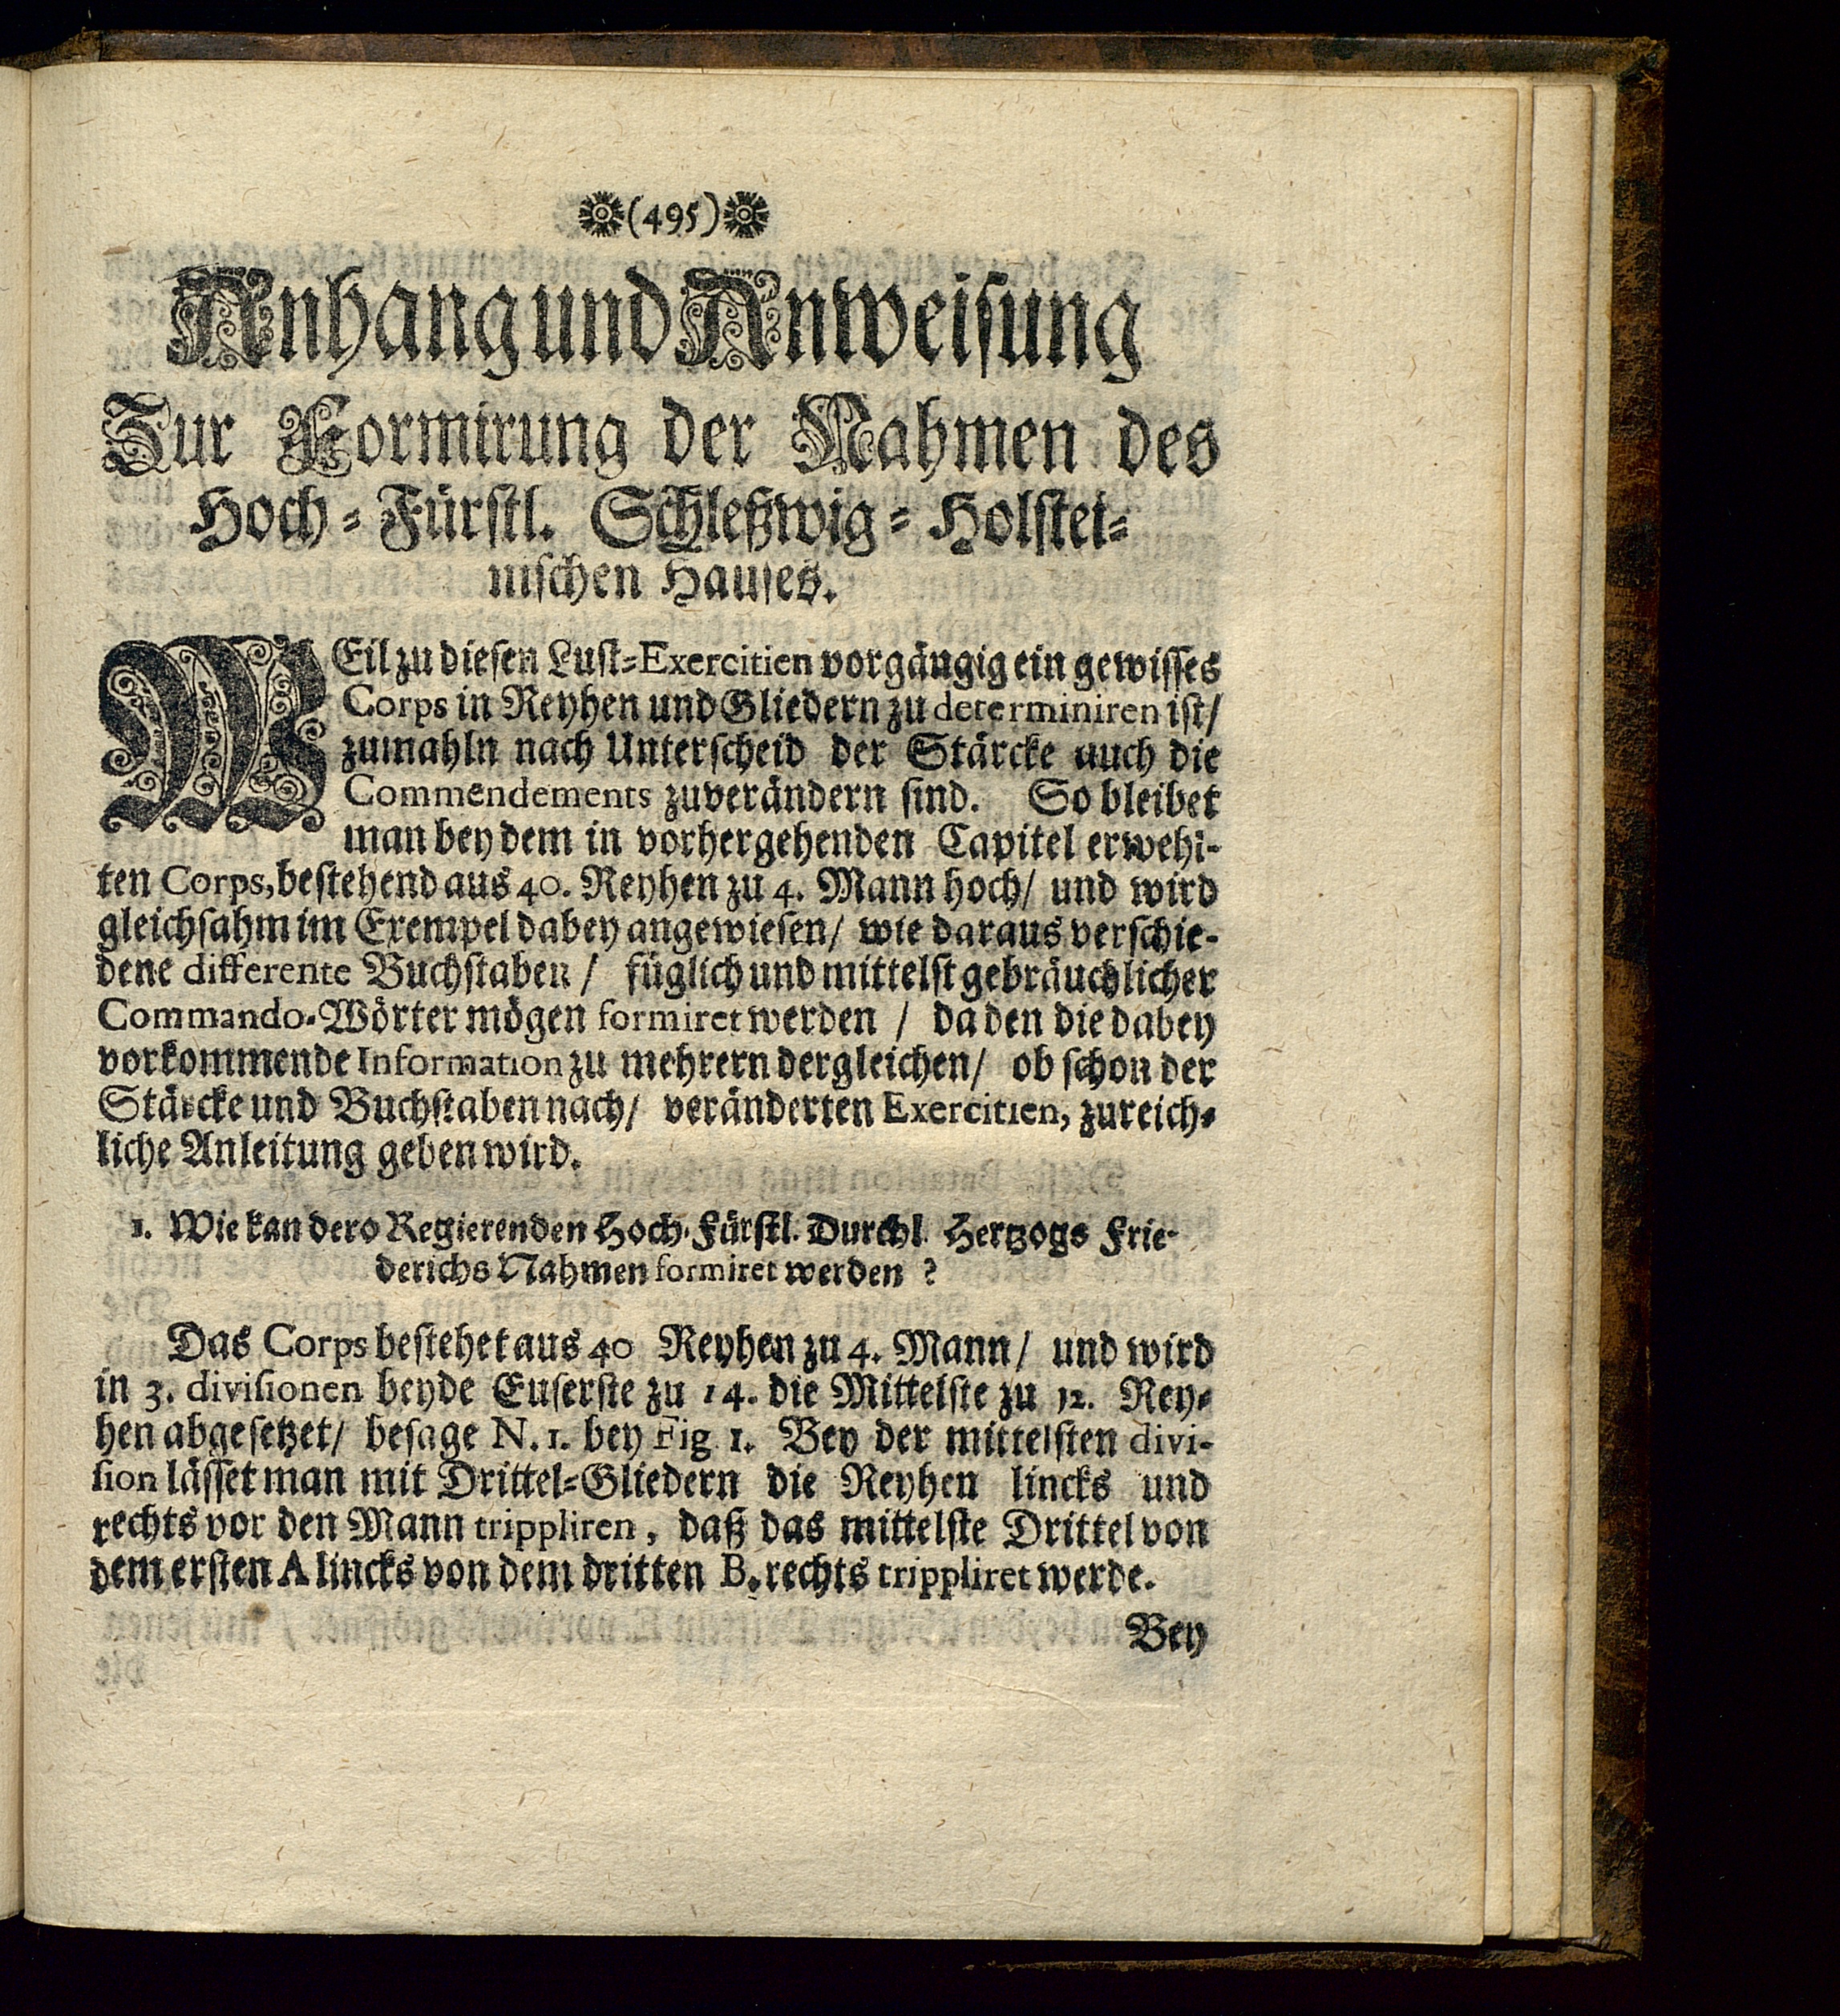 (495)
Anhang und Anweisung
Zur Formirung der Nahmen des
Hoch-Fürstl. Schleßwig-Holstei-
nischen Hauses.
WEil zu diesen Lust-Exercitien vorgängig ein gewisses
Corps in Reyhen und Gliedern zu determiniren ist/
zumahln nach Unterscheid der Stärcke auch die
Commendements zuverändern sind. So bleibet
man bey dem in vorhergehenden Capitel erwehl-
ten Corps, bestehend aus 40. Reyhen zu 4. Mann hoch/ und wird
gleichsahm im Exempel dabey angewiesen/ wie daraus verschie-
dene differente Buchstaben/ füglich und mittelst gebräuchlicher
Commando-Wörter mögen formiret werden/ da den die dabey
vorkommende Information zu mehrern dergleichen/ ob schon der
Stärcke und Buchstaben nach/ veränderten Exercitien, zureich-
liche Anleitung geben wird.
1. Wie kan dero Regierenden Hoch-Fürstl. Durchl. Hertzogs Frie-
derichs Nahmen formiret werden?
Das Corps bestehet aus 40 Reyhen zu 4. Mann/ und wird
in 3. divisionen beyde Euserste zu 14. die Mittelste zu 12. Rey-
hen abgesetzet/ besage N. 1. bey Fig 1. Bey der mittelsten divi-
sion lässet man mit Drittel-Gliedern die Reyhen lincks und
rechts vor den Mann trippliren, daß das mittelste Drittel von
dem ersten A lincks von dem dritten B. rechts trippliret werde.
Bey